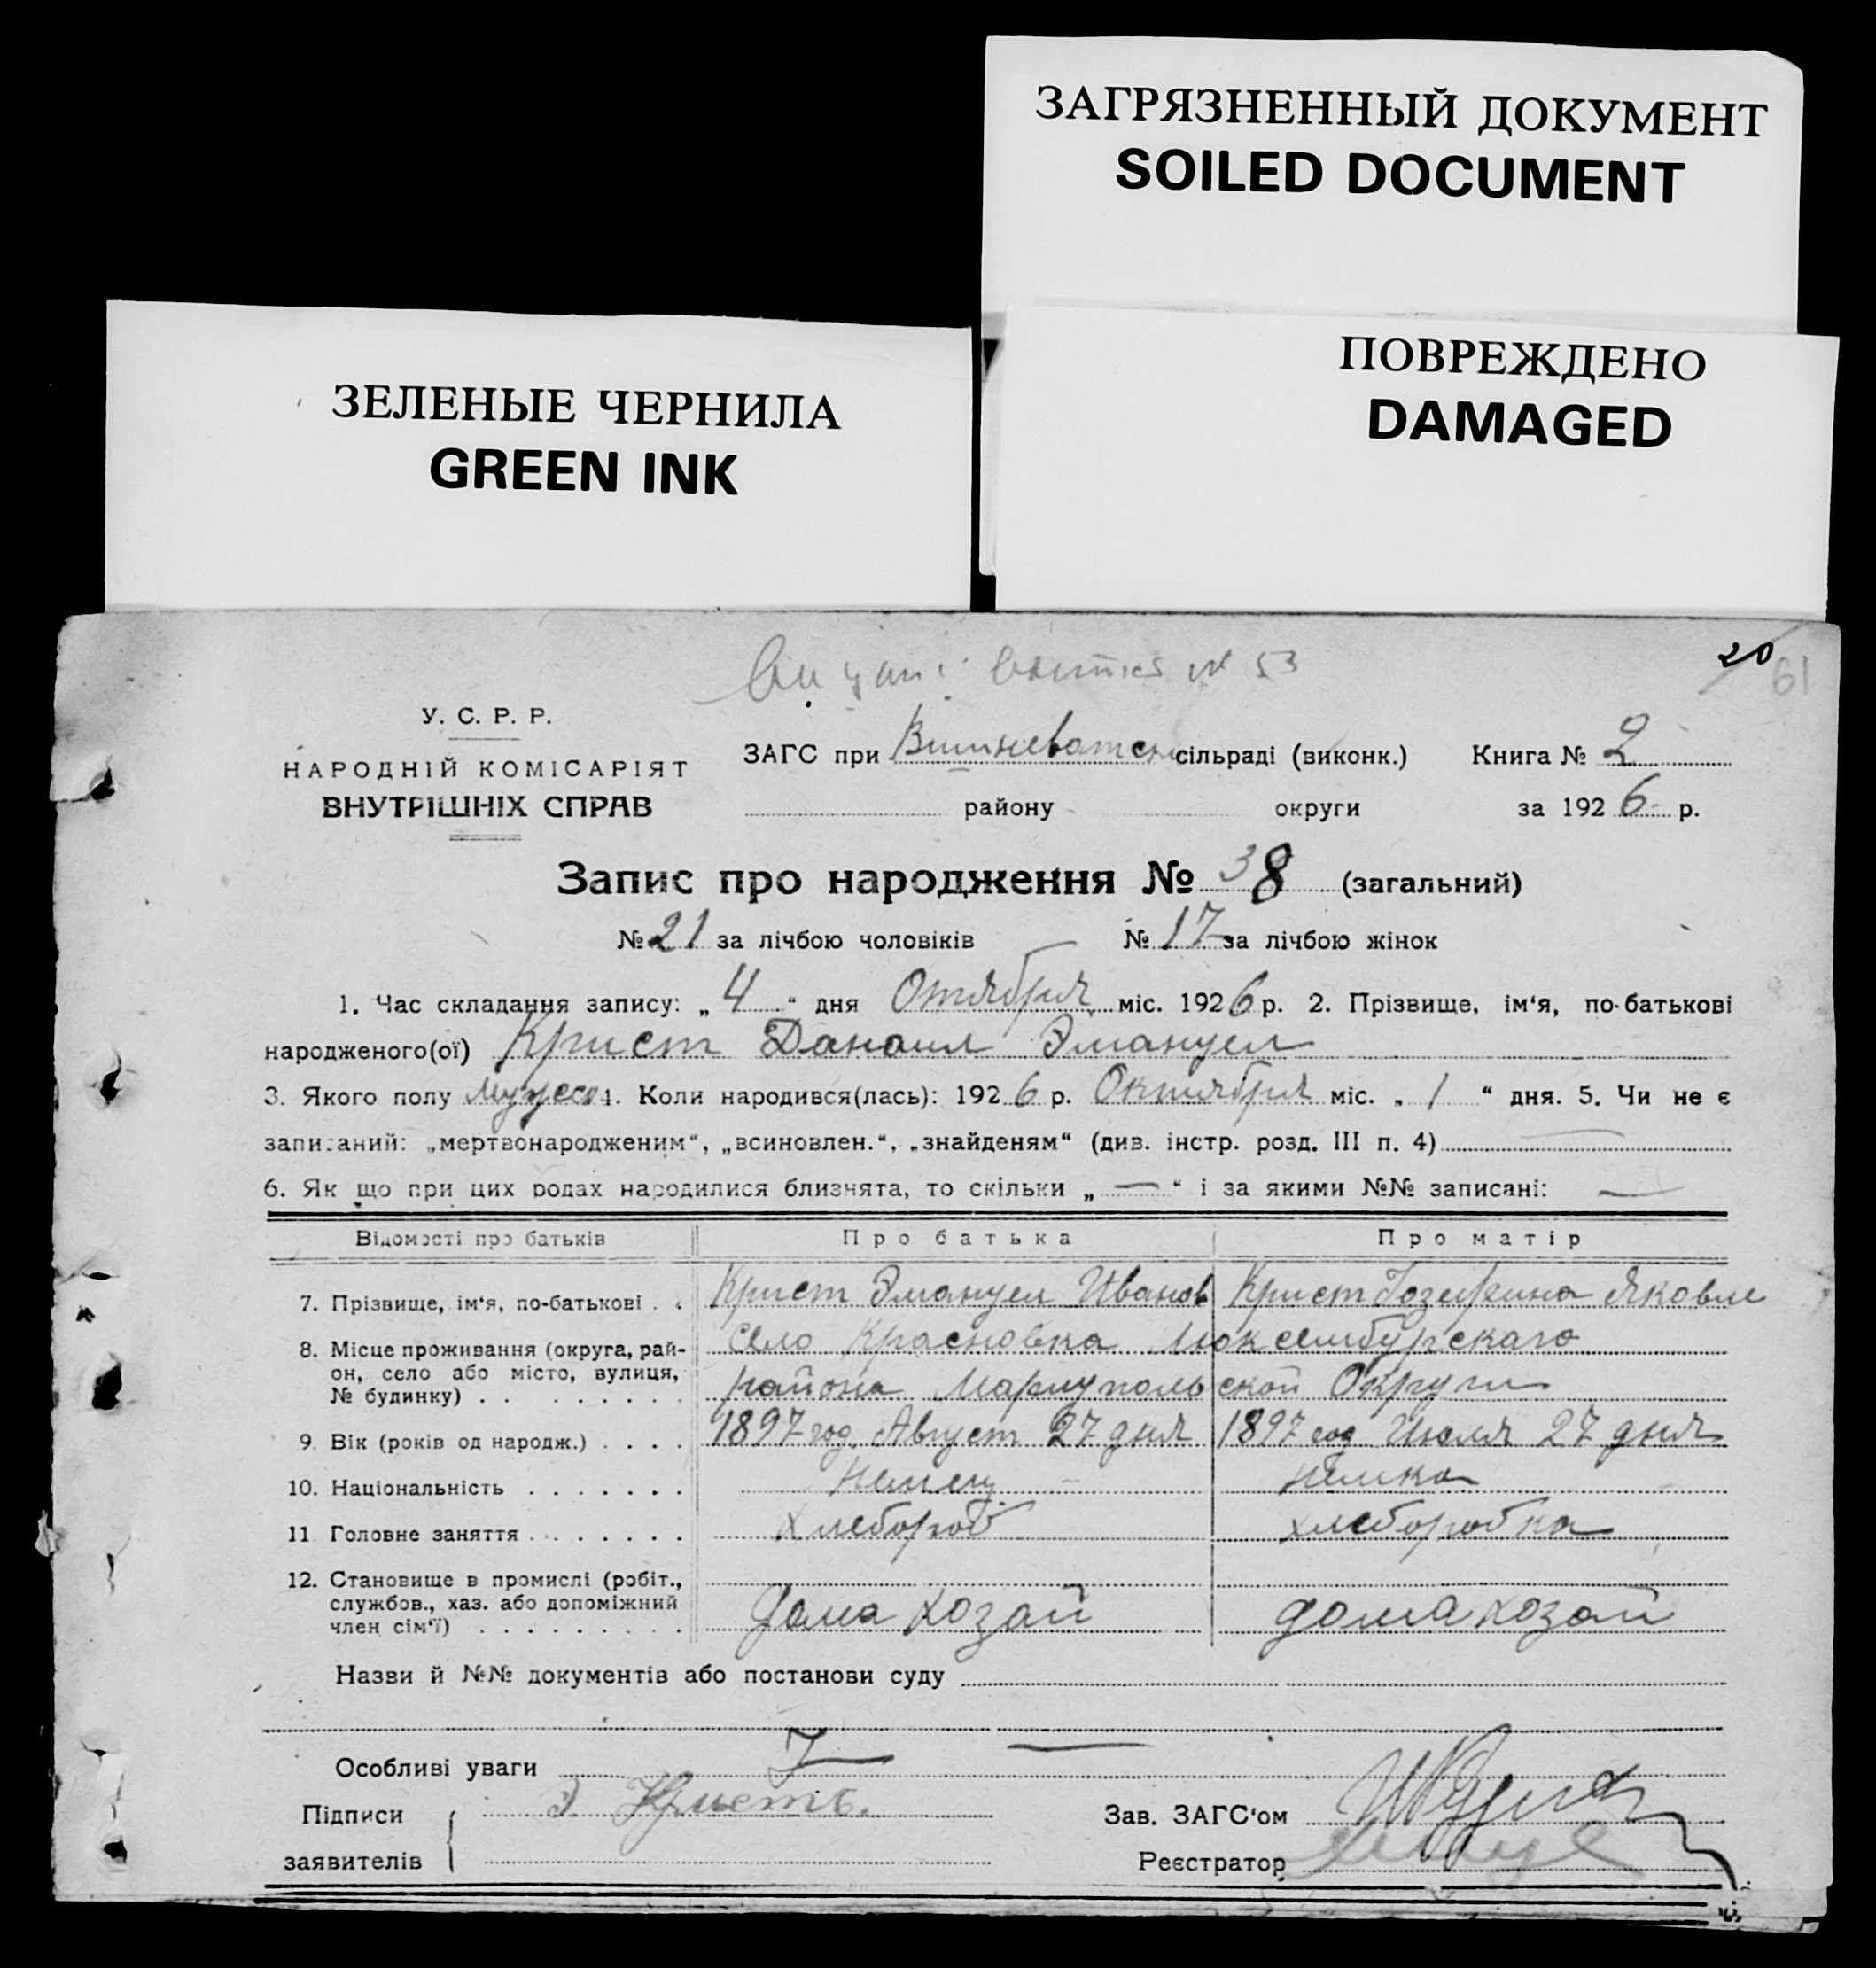 ЗАГРЯЗНЕННЫЙ ДОКУМЕНТ
SOILED DOCUMENT
ПОВРЕЖДЕНО
DAMAGED
ЗЕЛЕНЫЕ ЧЕРНИЛА
GREEN INK
№ 53
20
61
У. С. Р. Р.
НАРОДНІЙ КОМІСАРІЯТ
ВНУТРІШНІХ СПРАВ
ЗАГС при Вишневатск сільраді (виконк.) Книга № 2
району округи за 1926 р.
Запис про народження № 38 (загальний)
№ 21 за лічбою чоловіків № 17 за лічбою жінок
1. Час складання запису: „ 4 “ дня Отября міс. 1926 р. 2. Прізвище, ім‘я, по-батькові
народженого(ої) Крист Данаил Эмануел
3. Якого полу мужеск 4. Коли народився(лась): 1926 р. Октября міс. „ 1 “ дня. 5. Чи не є
записаний: „мертвонародженим“, „всиновлен.“, „знайденям“ (див. інстр. розд. III п. 4)
6. Як що при цих родах народилися близнята, то скільки „ — “ і за якими №№ записані: —
Відомості про батьків Про батька Про матір
7. Прізвище, ім‘я, по-батькові . . Крист Эмануел Иванов Крист Яковле
8. Місце проживання (округа, рай-
он, село або місто, вулиця,
№ будинку) . . . . . . . . .
Село Красновка Люксембургскаго
района Мариупольской Округи
9. Вік (років од народж.) . . . . 1897 год. Август 27 дня 1897 год Июля 27 дня
10. Національність . . . . . . . Немец немка
11 Головне заняття . . . . . . . Хлебороб хлеборобка
12. Становище в промислі (робіт.,
службов., хаз. або допоміжний
член сім‘ї) . . . . . . . . .
Дома хозай дома хозай
Назви й №№ документів або постанови суду
Особливі уваги
Підписи
заявителів
Э. Кристъ.
Зав. ЗАГС‘ом
Реєстратор